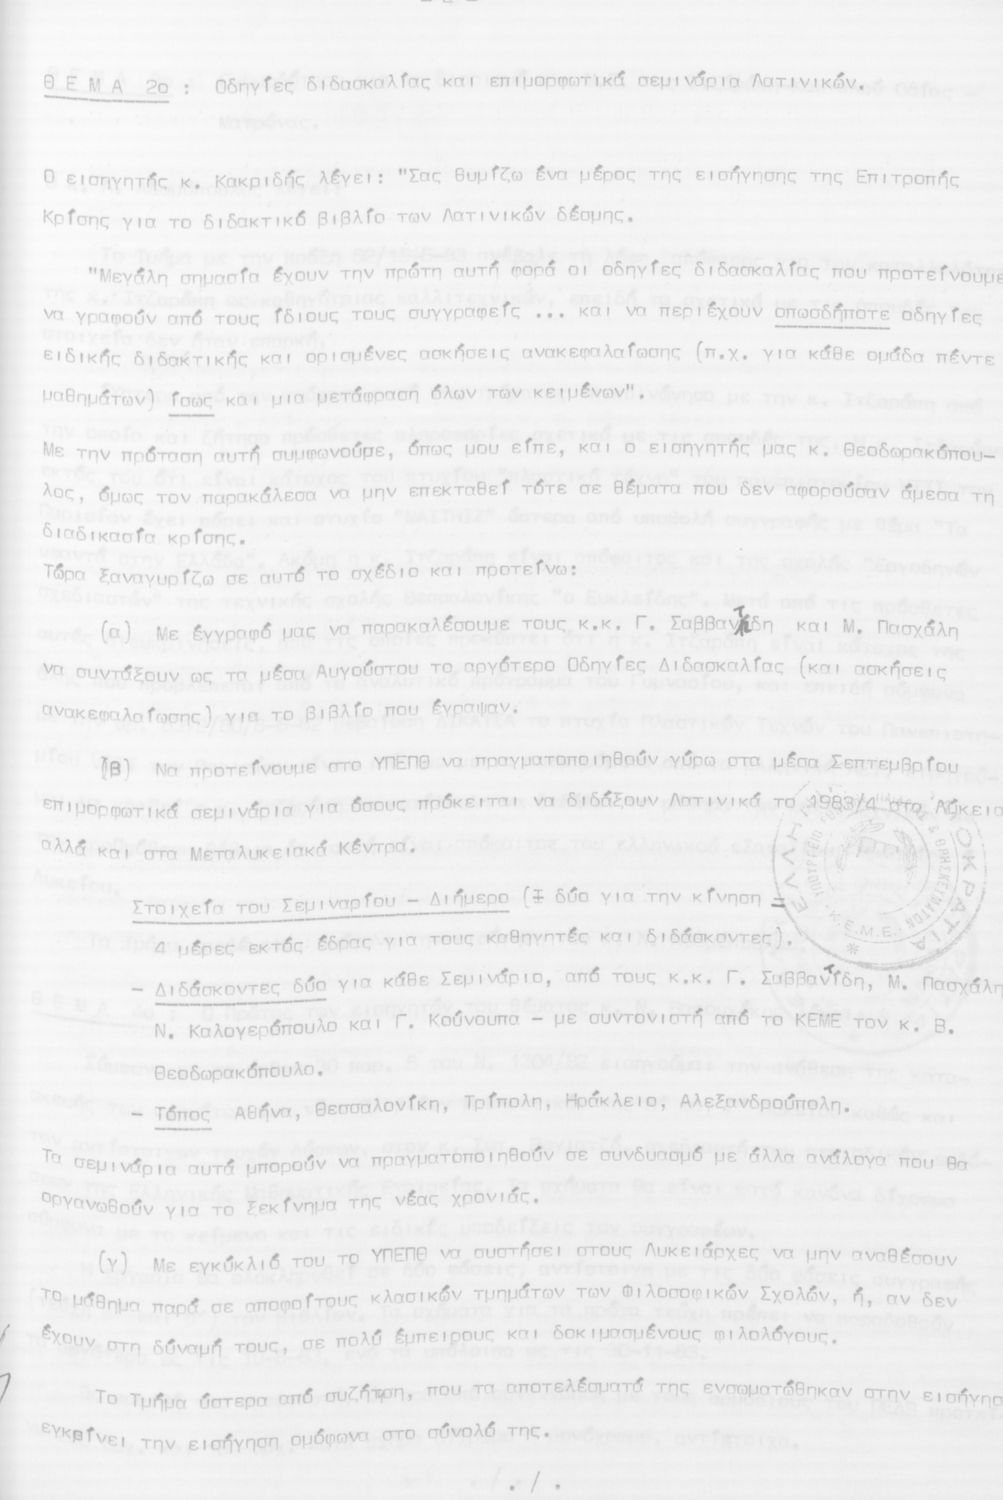 Θ Ε Μ Α 2ο : Οδηγίες διδασκαλίας και επιμορφωτικά σεμινάρια Λατινικών.
Ο εισηγητής κ. Κακριδής λέγει: "Σας θυμίζω ένα μέρος της εισήγησης της Επιτροπής
Κρίσης για το διδακτικό βιβλίο των Λατινικών δέσμης.
"Μεγάλη σημασία έχουν την πρώτη αυτή φορά οι οδηγίες διδασκαλίας που προτείνουμε
να γραφούν από τους ίδιους τους συγγραφείς ... και να περιέχουν οπωσδήποτε οδηγίες
ειδικής διδακτικής και ορισμένες ασκήσεις ανακεφαλαίωσης (π.χ. για κάθε ομάδα πέντε
μαθημάτων) ίσως και μια μετάφραση όλων των κειμένων".
Με την πρόταση αυτή συμφωνούμε, όπως μου είπε, και ο εισηγητής μας κ. Θεοδωρακόπου-
λος, όμως τον παρακάλεσα να μην επεκταθεί τότε σε θέματα που δεν αφορούσαν άμεσα τη
διαδικασία κρίσης.
Τώρα ξαναγυρίζω σε αυτό το σχέδιο και προτείνω:
(α) Με έγγραφό μας να παρακαλέσουμε τους κ.κ. Γ. Σαββαντίδη και Μ. Πασχάλη
να συντάξουν ως τα μέσα Αυγούστου το αργότερο Οδηγίες Διδασκαλίας (και ασκήσεις
ανακεφαλαίωσης) για το βιβλίο που έγραψαν.
(β) Να προτείνουμε στο ΥΠΕΠΘ να πραγματοποιηθούν γύρω στα μέσα Σεπτεμβρίου
επιμορφωτικά σεμινάρια για όσους πρόκειται να διδάξουν Λατινικά το 1983/4 στο Λύκειο
αλλά και στα Μεταλυκειακά Κέντρα.
Στοιχεία του Σεμιναρίου - Διήμερο (+ δύο για την κίνηση =
4 μέρες εκτός έδρας για τους καθηγητές και διδάσκοντες).
- Διδάσκοντες δύο για κάθε Σεμινάριο, από τους κ.κ. Γ. Σαββαντίδη, Μ. Πασχάλη
Ν. Καλογερόπουλο και Γ. Κούνουπα - με συντονιστή από το ΚΕΜΕ τον κ. Β.
Θεοδωρακόπουλο.
- Τόπος Αθήνα, Θεσσαλονίκη, Τρίπολη, Ηράκλειο, Αλεξανδρούπολη.
Τα σεμινάρια αυτά μπορούν να πραγματοποιηθούν σε συνδυασμό με άλλα ανάλογα που θα
οργανωθούν για το ξεκίνημα της νέας χρονιάς.
(γ) Με εγκύκλιό του το ΥΠΕΠΘ να συστήσει στους Λυκειάρχες να μην αναθέσουν
το μάθημα παρά σε αποφοίτους κλασικών τμημάτων των Φιλοσοφικών Σχολών, ή, αν δεν
έχουν στη δύναμή τους, σε πολύ έμπειρους και δοκιμασμένους φιλολόγους.
Το Τμήμα ύστερα από συζήτηση, που τα αποτελέσματά της ενσωματώθηκαν στην εισήγησ
εγκρίνει την εισήγηση ομόφωνα στο σύνολό της.
./.